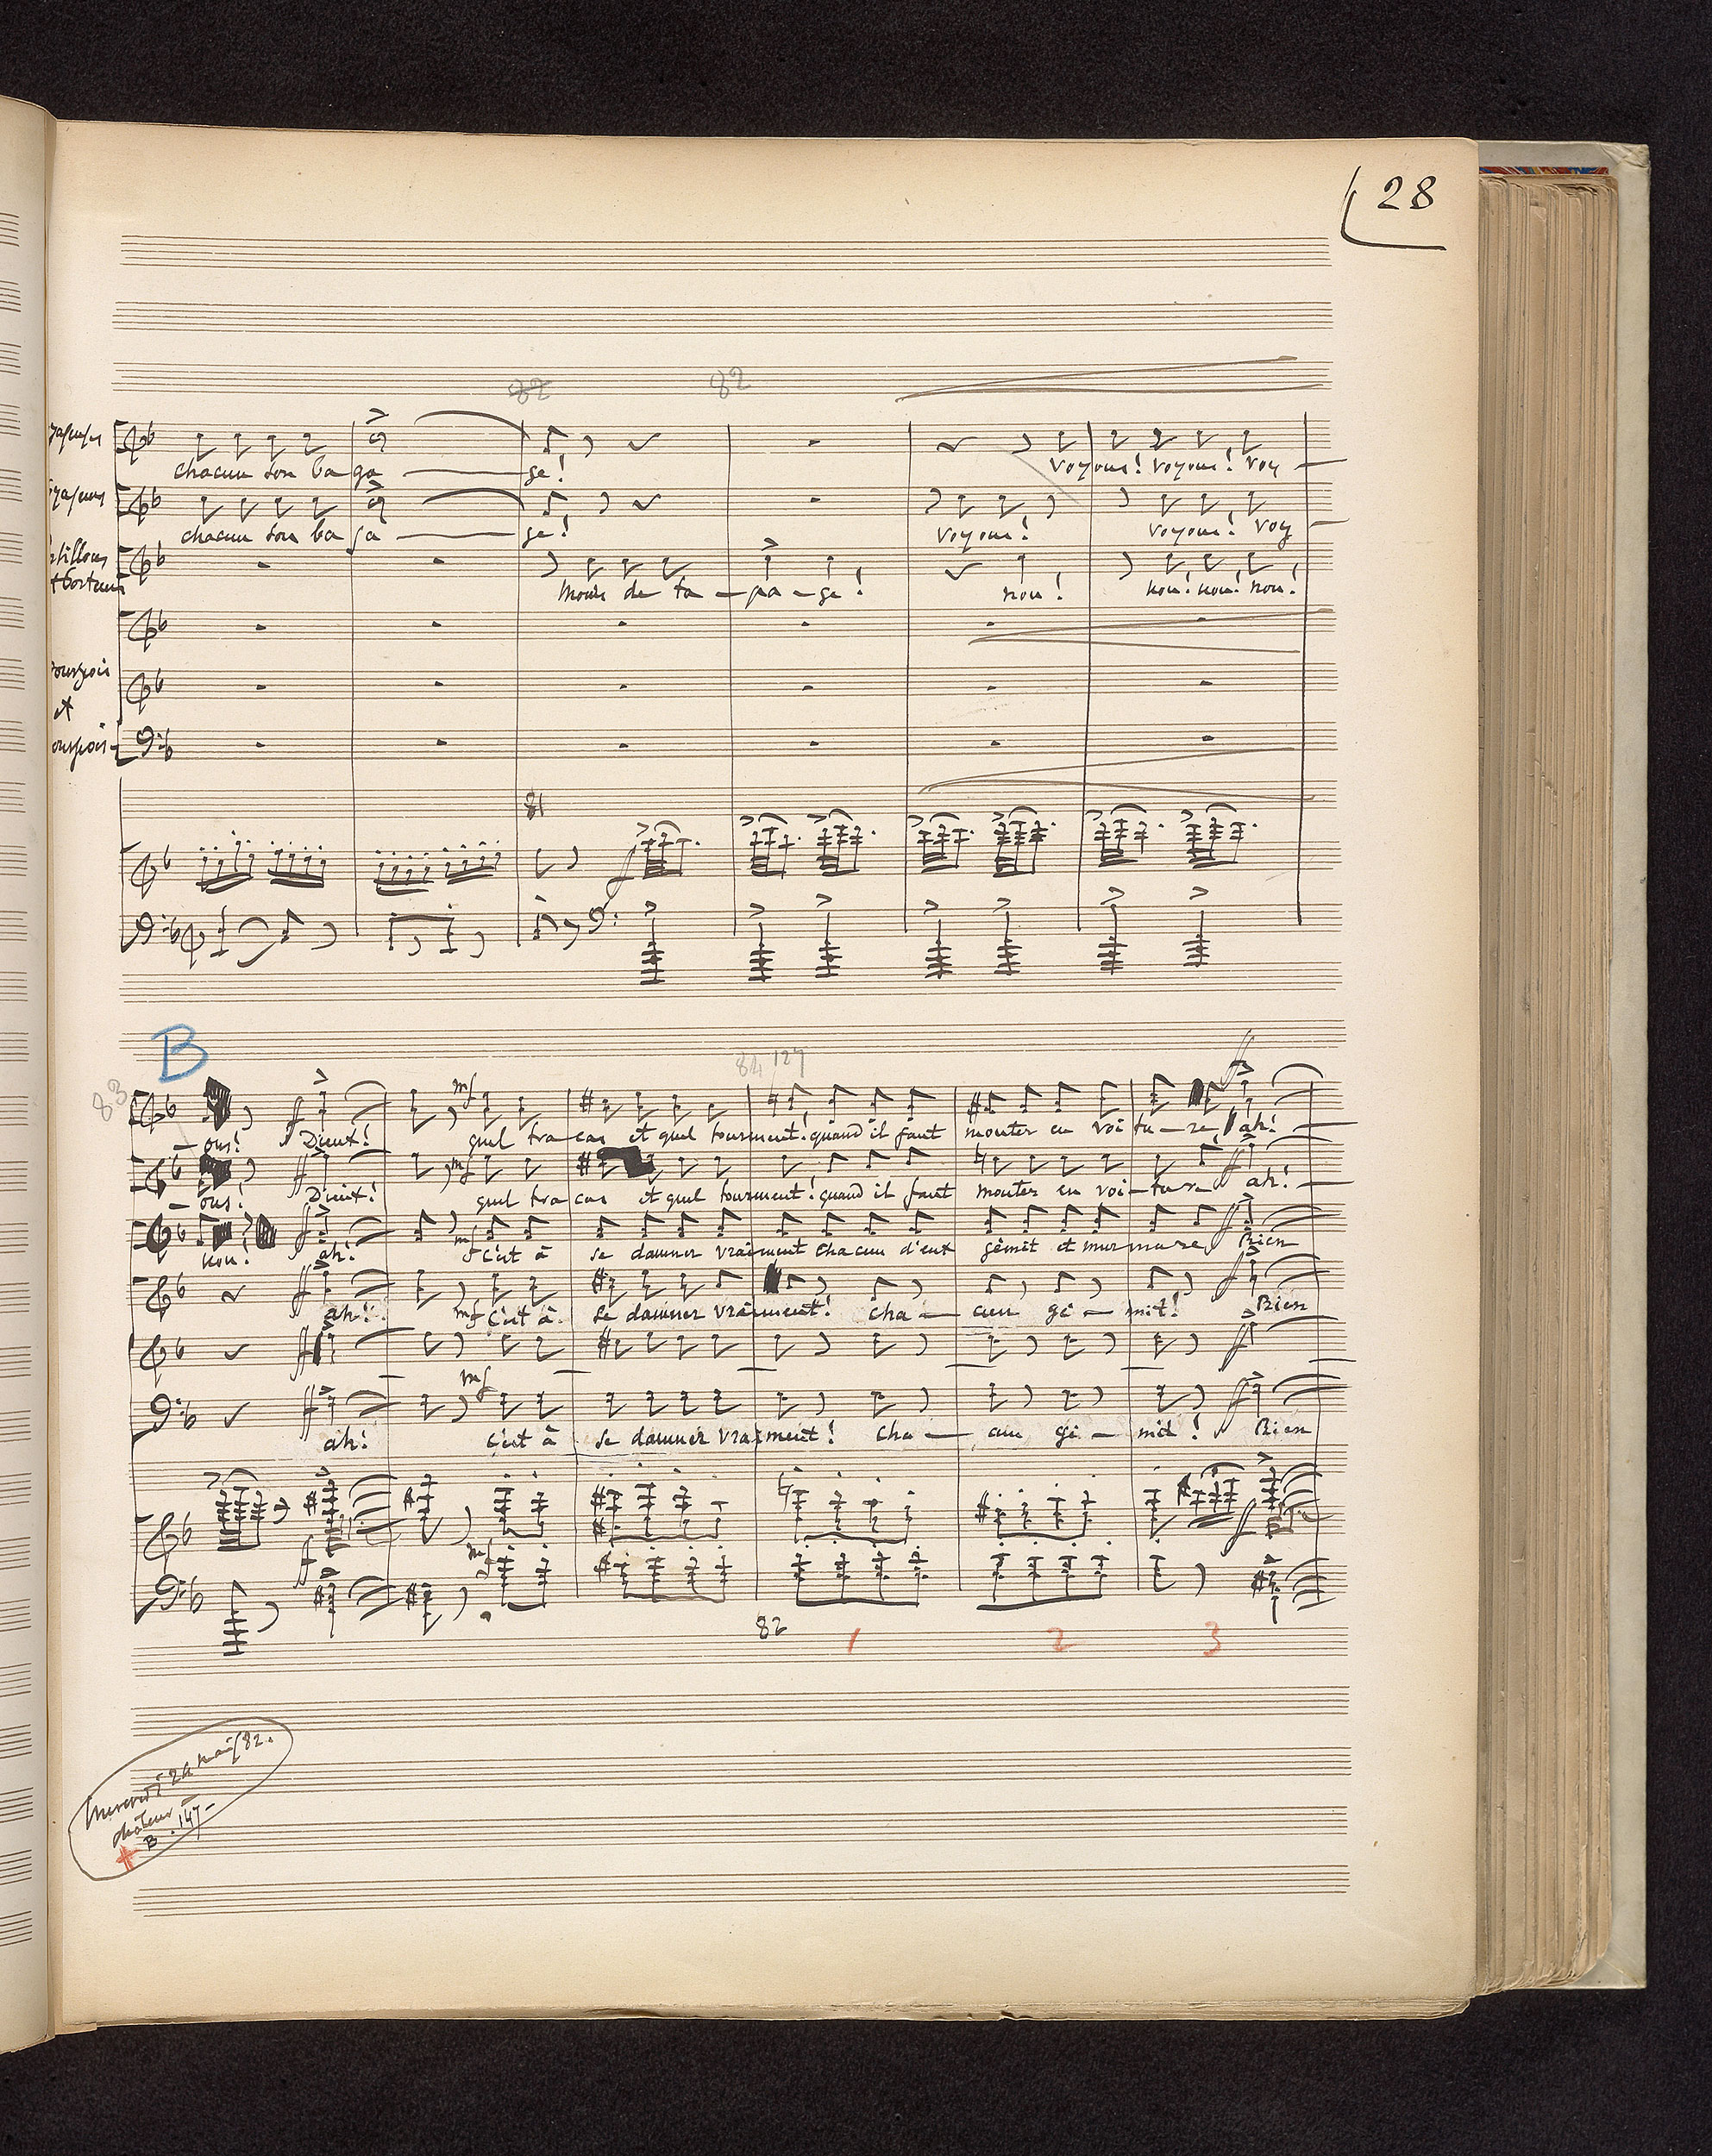 28
82 82
chacun son ba ga ge! voyons! voyons! voy
chacun son ba ga ge! voyons! voyons! voy
tillons
moins de ta - pa - ge! non! non! non! non!
et
81
B
83 84 127
mf ff
- ons! Dieux! quel tra cas et quel tourment! quand il faut monter en voi tu - re, ah!
- ons! Dieux! quel tra cas et quel tourment! quand il faut monter en voi - ture ah!
non! ah! c'est à se damner vraiment chacun d'eux gémit et murmure, Rien
ah! mf c'est à se damner vraiment! cha - cun gé - mit! Rien
mf
ah! c'est à se damner vraiment! cha - cun gé - mit! Rien
mf
82 1 2 3
Mercredi 24 mai/82.
chaleur -
+ B. 147 -